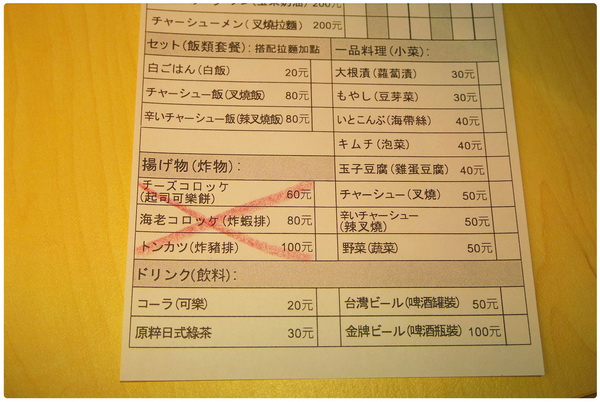 200元
チャーシューメン(叉燒拉麵) 200元
セット(飯類套餐): 搭配拉麵加點
白ごはん(白飯) 20元
チャーシュー飯(叉燒飯) 80元
辛いチャーシュー飯(辣叉燒飯) 80元
揚げ物(炸物):
チーズコロッケ
(起司可樂餅) 60元
海老コロッケ(炸蝦排) 80元
トンカツ(炸豬排) 100元
一品料理(小菜):
大根漬(蘿蔔漬) 30元
もやし(豆芽菜) 30元
いとこんぶ(海帶絲) 40元
キムチ(泡菜) 40元
玉子豆腐(雞蛋豆腐) 40元
チャーシュー(叉燒) 50元
辛いチャーシュー
(辣叉燒) 50元
野菜(蔬菜) 50元
ドリンク(飲料):
コーラ(可樂) 20元
原粹日式綠茶 30元
台灣ビール(啤酒罐裝) 50元
金牌ビール(啤酒瓶裝) 100元